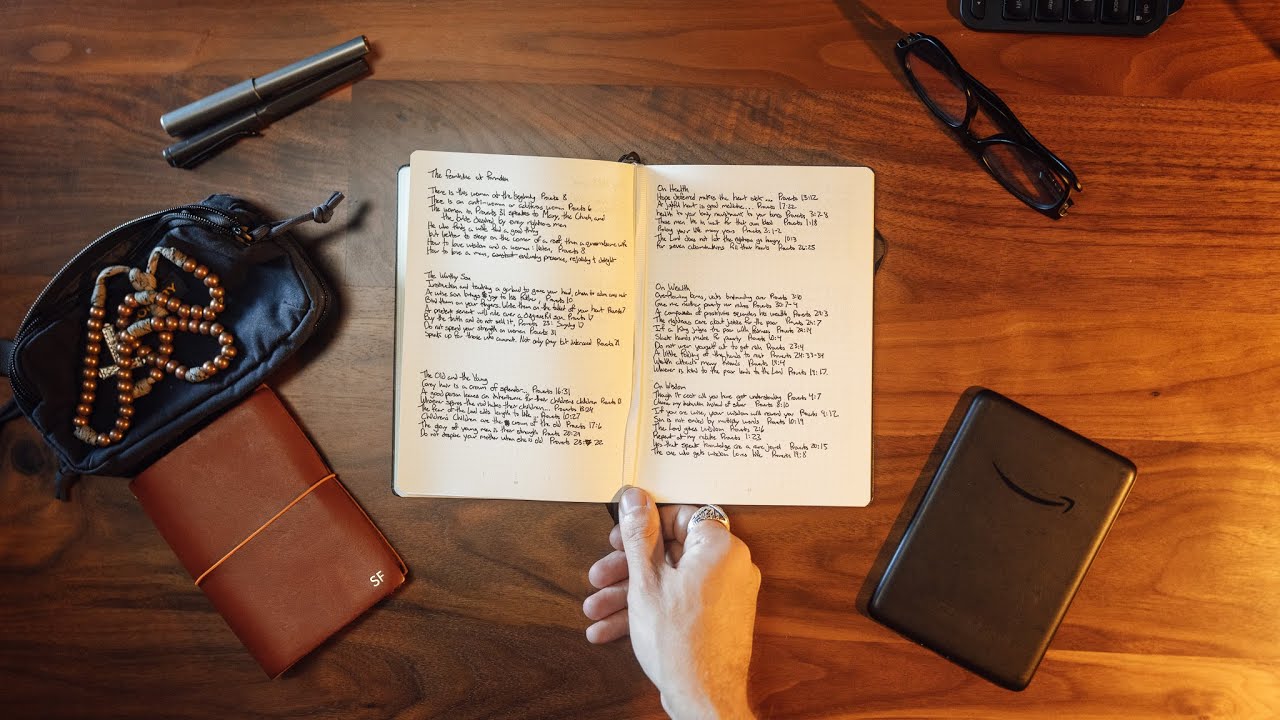 There is this woman at the beginning Proverbs 8
The women in Proverbs 31 speaks to Mary, the Church, and
the bride desired by every righteous man
He who finds a wife finds a good thing
How to love wisdom and a woman: listen, Proverbs 8
How to love a man, constant enduring presence,
The Worthy Son
A wise son brings joy to his father, Proverbs 10
Bind them on your fingers. Write them on the tablet of your heart Proverbs 7
A prudent servant will rule over a disgraceful son Proverbs 17
Buy the truth and do not sell it, Proverbs 23:
Do not spend your strength on women Proverbs 31
Speak up for those who cannot. Not only pray but intercede Proverbs 31
The Old and the Young
Grey hair is a crown of splendor... Proverbs 16:31
A good person leaves an inheritance for their childrens children Proverbs 13
Whoever spares the rod hates their children... Proverbs 13:24
The fear of the Lord adds length to life, Proverbs 10:27
Childrens Children are the crown of the old Proverbs 17:6
The glory of young men is their strength Proverbs 20:29
Do not despise your mother when she is old Proverbs 23: 22
On Health
Hope deferred makes the heart sick... Proverbs 13:12
A joyful heart is good medicine... Proverbs 17:22
health to your body nourishment to your bones Proverbs 3:2-8
These men lie in wait for their own blood Proverbs 1:18
Prolong your life many years Proverbs 3:1-2
The Lord does not let the righteous go hungry 10:3
For seven abominations fill their hearts Proverbs 26:25
On Wealth
Overflowing barns, vats Proverbs 3:10
Give me neither poverty nor riches Proverbs 30:7-9
A companion of prostitutes squanders his wealth, Proverbs 29:3
The righteous care about justice for the poor Proverbs 29:7
If a King judges the poor with fairness Proverbs 29:14
Slack hands makes for poverty Proverbs 10:4
Do not wear yourself out to get rich Proverbs 23:4
A little folding of the hands to rest Proverbs 24:33-34
Wealth attracts many friends Proverbs 19:4
Whoever is kind to the poor lends to the Lord Proverbs 19:17
On Wisdom
Though it cost all you have get understanding Proverbs 4:7
Choose my instruction instead of silver Proverbs 8:10
If you are wise, your wisdom will reward you Proverbs 9:12
Sin is not ended by multiply words Proverbs 10:19
The Lord gives Wisdom Proverbs 2:6
Repent at my rebuke Proverbs 1:23
lips that speak knowledge are a rare jewel Proverbs 20:15
The one who gets wisdom loves life Proverbs 19:8
SF